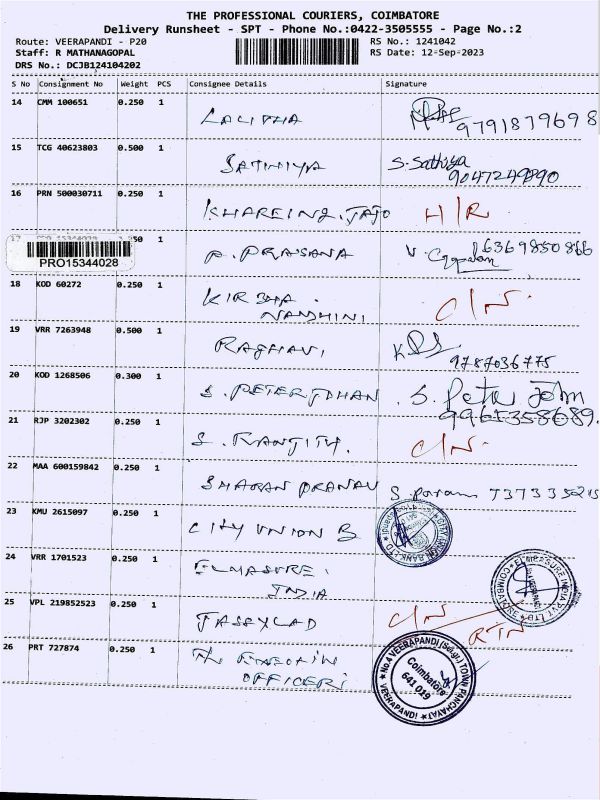 THE PROFESSIONAL COURIERS, COIMBATORE
Delivery Runsheet - SPT - Phone No.:0422-3505555 - Page No.:2
Route: VEERAPANDI - P20 RS No.: 1241042
Staff: R MATHANAGOPAL RS Date: 12-Sep-2023
DRS No.: DCJB124104202
S No Consignment No Weight PCS Consignee Details Signature
14 CMM 100651 0.250 1 LALITHA 9791879698
15 TCG 40623803 0.500 1 SATHIYA S. Sathiya
9047249890
16 PRN 500030711 0.250 1 H/R
17 50 1 P. PRASANA V. 6369850866
PRO15344028
18 KOD 60272 0.250 1 C/N.
NANDHINI
19 VRR 7263948 0.500 1 RAGHAVI
9787036775
20 KOD 1268506 0.300 1 S. PETER JOHAN S. Peter John
9965358689.
21 RJP 3202302 0.250 1 S. RANJITH. C/N.
22 MAA 600159842 0.250 1 SHARAN PRANAV S.
23 KMU 2615097 0.250 1 CITY UNION B
24 VRR 1701523 0.250 1 ELMASURE.
INDIA
25 VPL 219852523 0.250 1 C/N RTN
26 PRT 727874 0.250 1 OFFICER
No.4 VEERAPANDI (Sel.gr.) TOWN PANCHAYAT
Coimbatore
641 019
VEERAPANDI